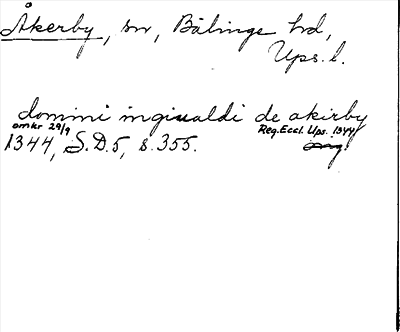 Åkerby, sn, Bälinge hd,
Ups. l.
domini ingiualdi de akirby
omkr 29/9 Reg. Eccl. Ups. 1344
1344, S.D.5, s. 355. orig.